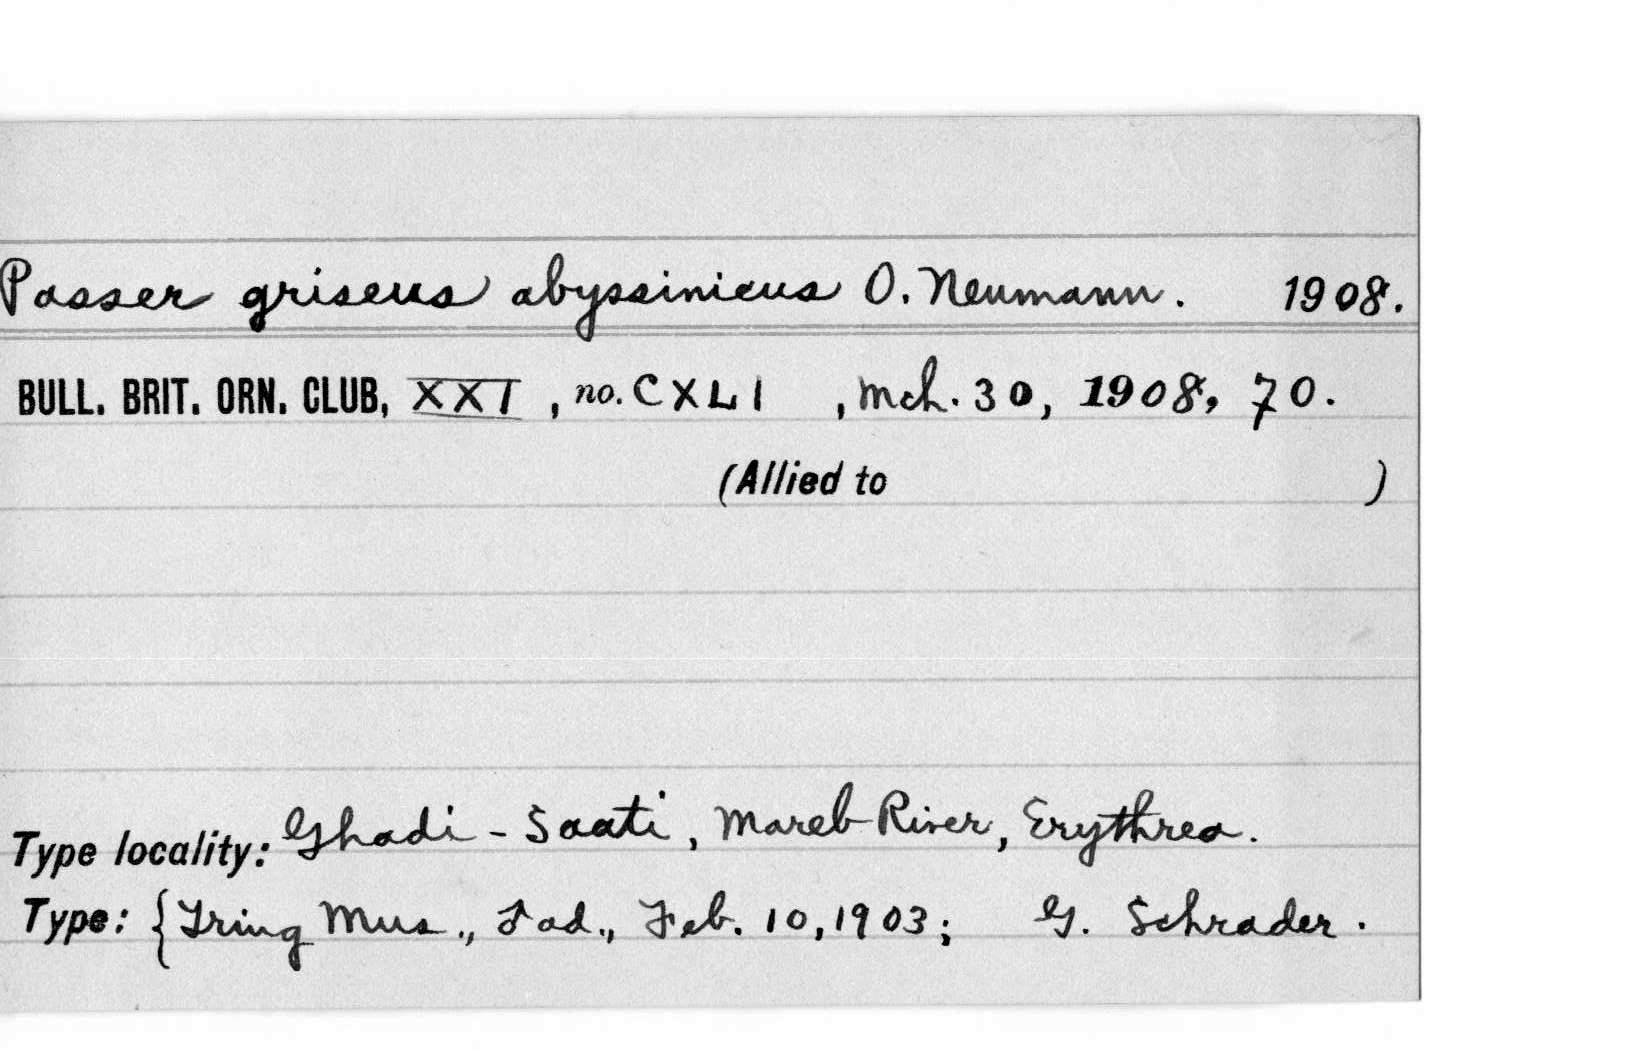 Passer griseus abyssinicus O. Neumann. 1908.
BULL. BRIT. ORN. CLUB, XXI, no. CXLI, Mch. 30, 1908, 70.
(Allied to )
Type locality: Ghadi-Saati, Mareb River, Erythrea.
Type: { Tring Mus., ad., Feb. 10, 1903; G. Schrader.